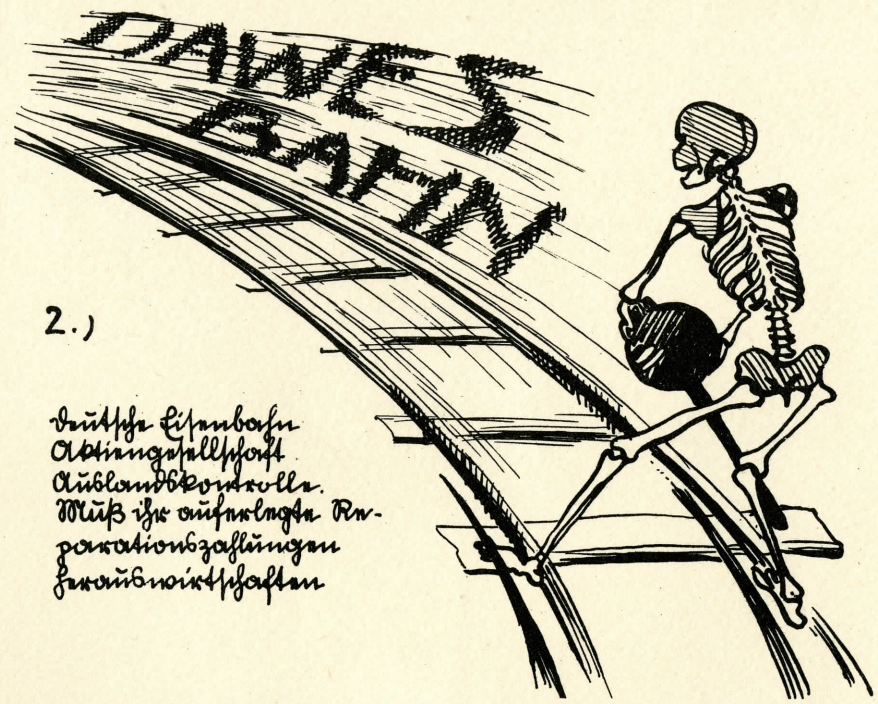 DAWES
BAHN
2.)
Deutsche Eisenbahn
Aktiengesellschaft
Auslandskontrolle.
Muß ihr auferlegte Re-
parationszahlungen
herauswirtschaften